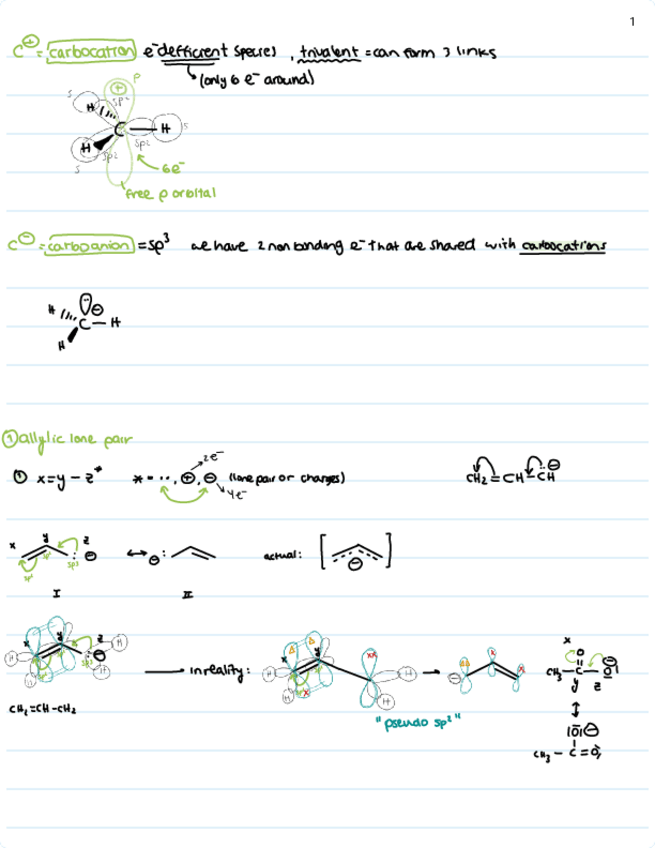 1
C⊕ = carbocation e⁻ defficient species, trivalent = can form 3 links
(only 6 e⁻ around)
P
⊕
S
H
sp²
C
H
S
sp2
H
sp2
S
6e⁻
free p orbital
C⊖ = carboanion = sp³ we have 2 non bonding e⁻ that are shared with carbocations
⊖
H
C
H
H
① allylic lone pair
① x=y-z* * = .., ⊕, ⊖ (lone pair or charges)
2e⁻
4e⁻
CH2=CH-CH⊖
x y z ⊖ ↔ ⊖: actual: [ ⊖ ]
sp²
sp²
sp3
I II
x y z ⊖ in reality:
sp3
H
H
H
H
"pseudo sp²"
CH2=CH-CH2
x
O
CH3-C-O⊖
y z
↕
|O|⊖
CH3-C=O